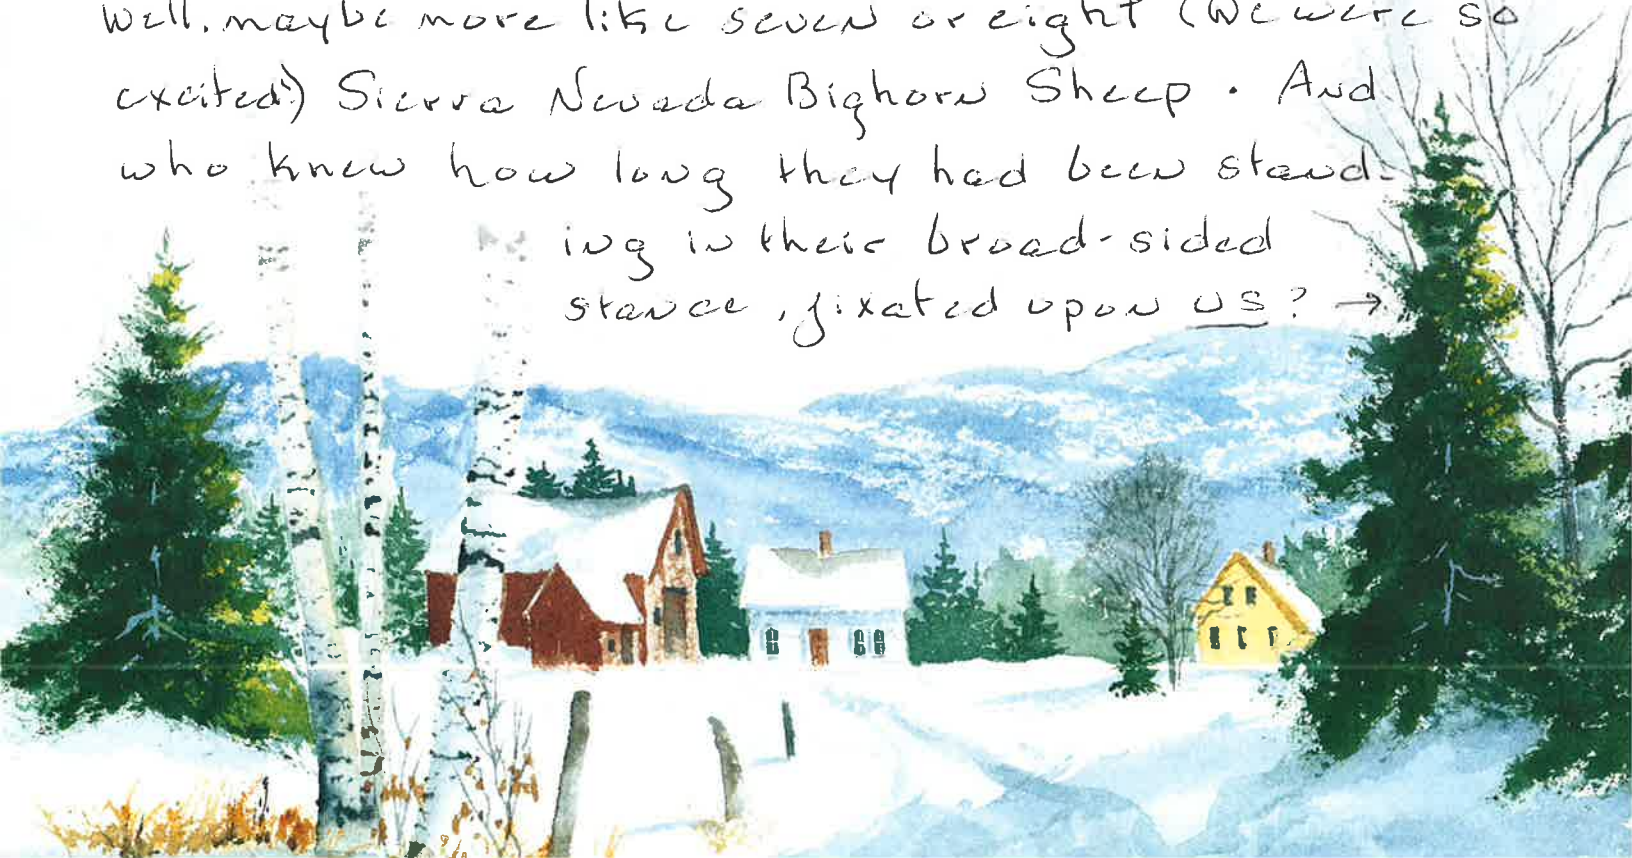 Well, maybe more like seven or eight (We were so
excited!) Sierra Nevada Bighorn Sheep. And
who knew how long they had been stand-
ing in their broad-sided
stance, fixated upon us? →